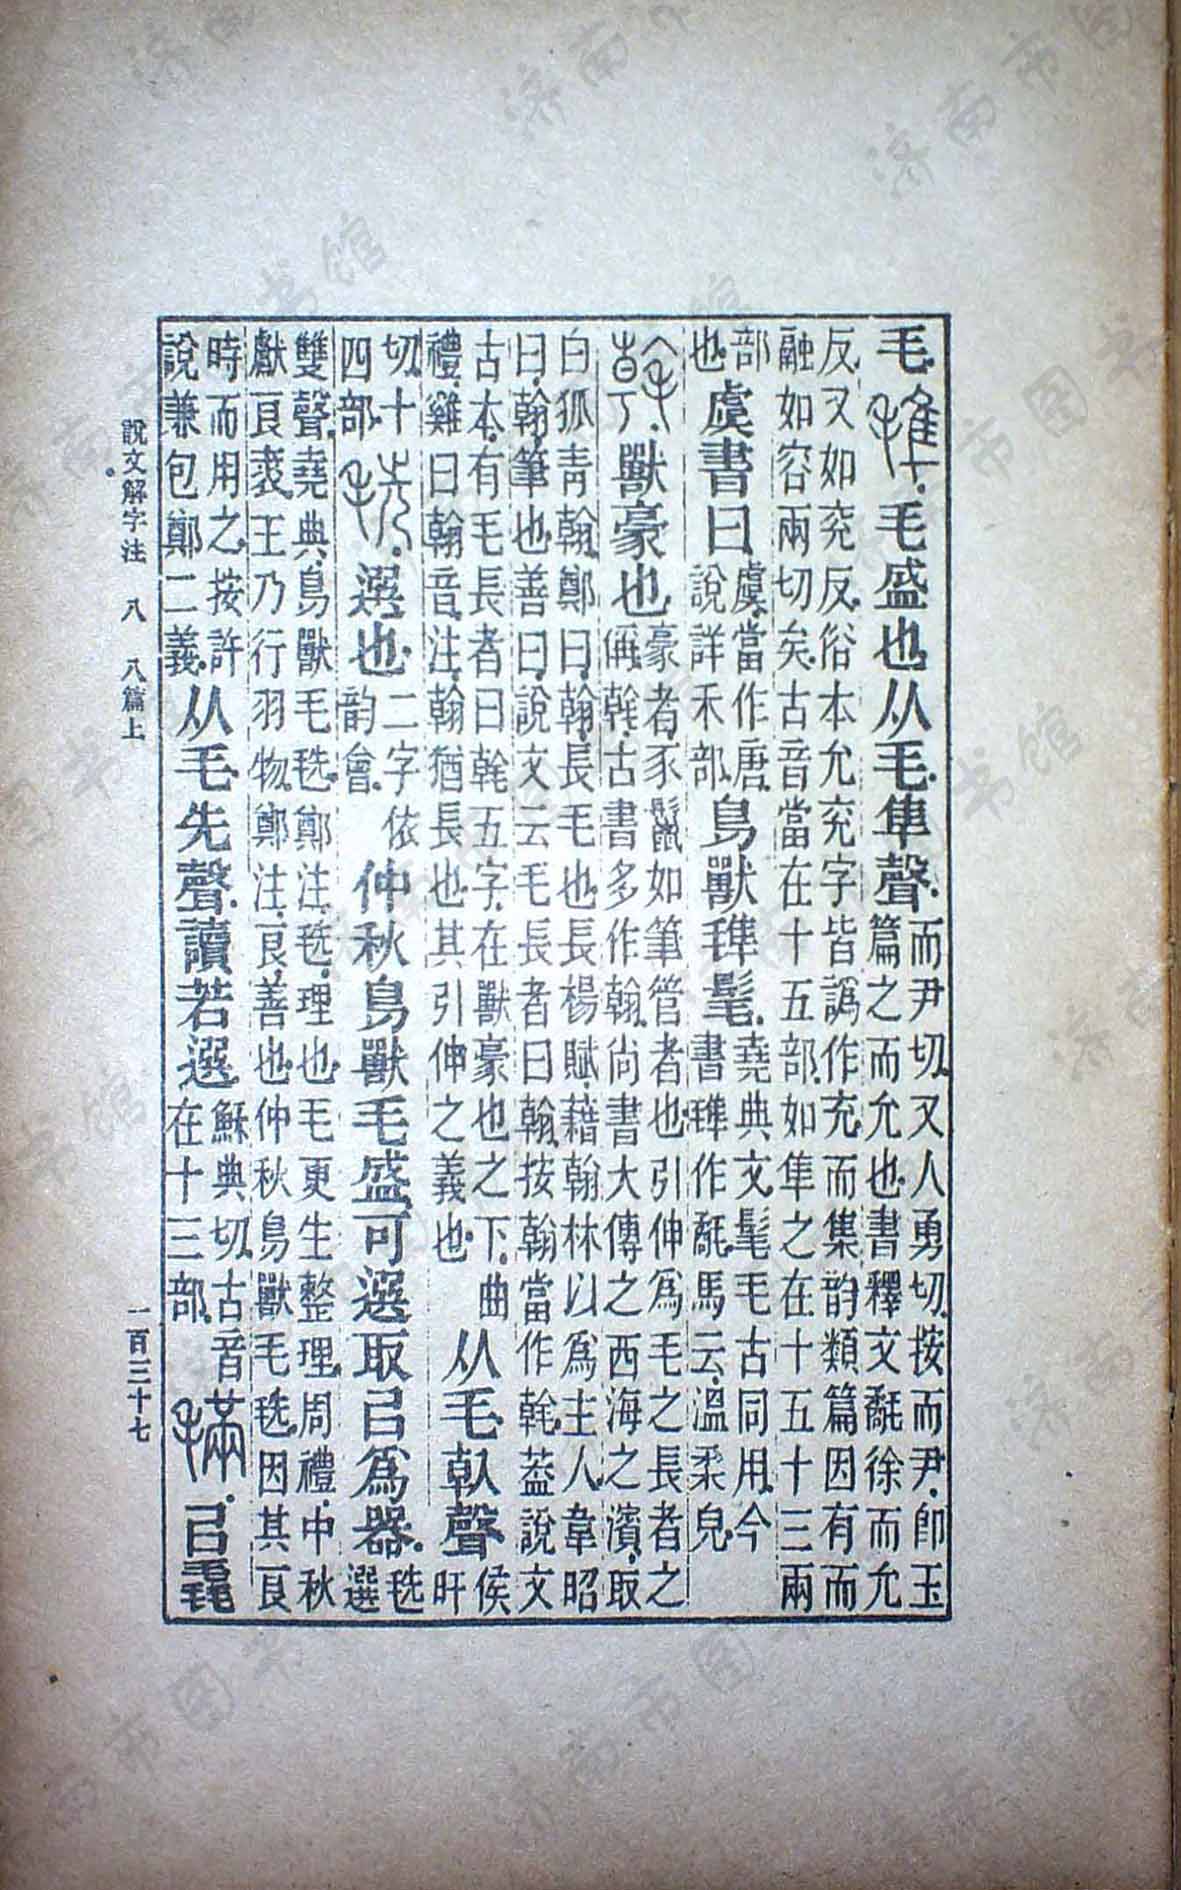 毛。毛盛也。从毛隼聲。
而尹切。又人勇切。按而尹。卽玉
篇之而允也。書釋文氄徐而允
反。又如兖反。俗本允兖字皆譌作充。而集韵類篇因有而
融如容兩切矣。古音當在十五部。如隼之在十五十三兩
部
也。
虞書曰。
虞當作唐。
說詳禾部。
鳥獸㲝髦。
堯典文。髦毛古同用。今
書㲝作氄。馬云。溫柔皃。
獸豪也。
豪者。豕鬣如筆管者也。引伸爲毛之長者之
偁。𣯍古書多作翰。尚書大傳之西海之濱。取
白狐靑翰。鄭曰。翰長毛也。長楊賦。藉翰林以爲主人。韋昭
曰。翰。筆也。善曰。說文云毛長者曰翰。按翰當作𣯍。葢說文
古本有毛長者曰𣯍五字。在獸豪也之下。曲
禮。雞曰翰音。注。翰猶長也。其引伸之義也。
从毛倝聲。
侯
旰
切。十
四部。
選也。
二字依
韵會。
仲秋鳥獸毛盛。可選取㠯爲器。
毨
選
雙聲。堯典。鳥獸毛毨。鄭注。毨。理也。毛更生整理。周禮。中秋
獻良裘。王乃行羽物。鄭注。良。善也。仲秋鳥獸毛毨。因其良
時而用之。按許
說兼包鄭二義。
从毛先聲。讀若選。
穌典切。古音
在十三部。
㠯毳
說文解字注 八 八篇上 一百三十七
济南市图书馆